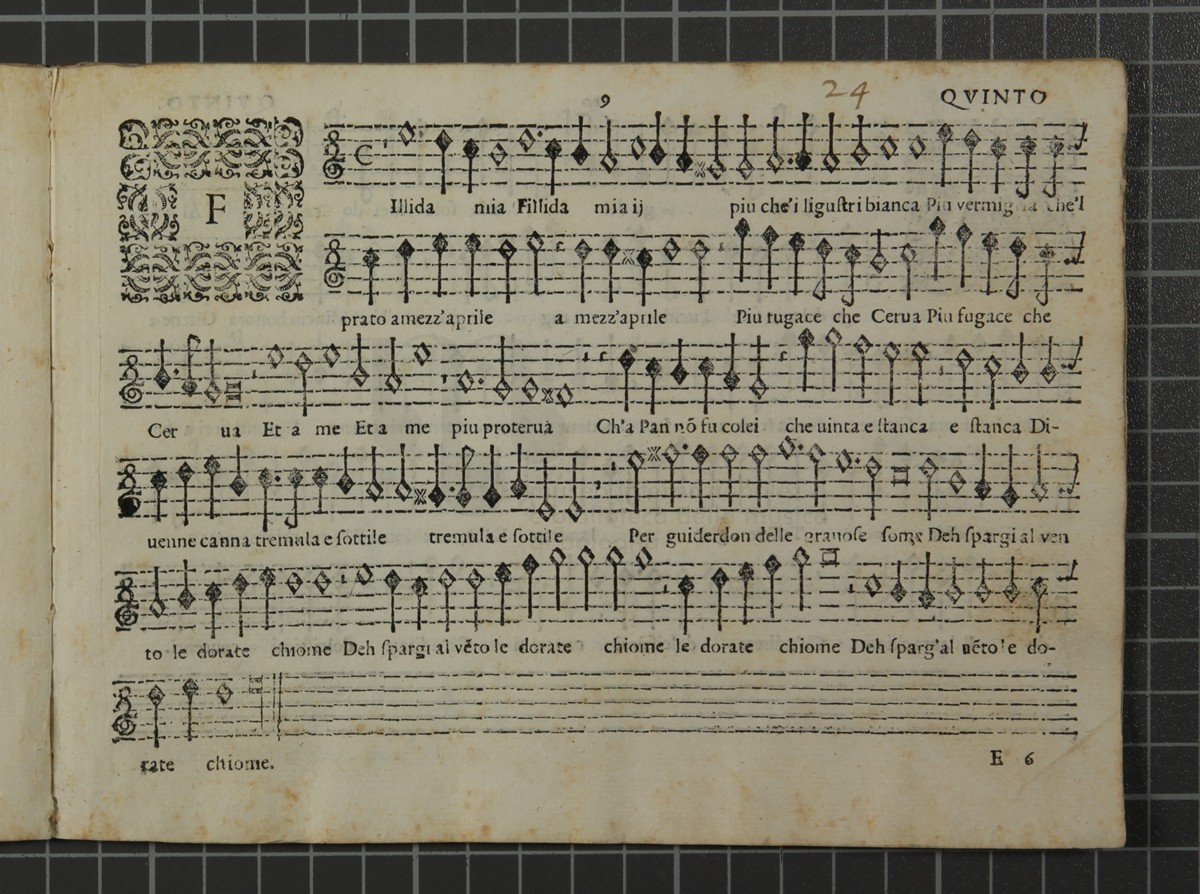 9 24 QVINTO
F
Illida mia Fillida mia ij piu che'i ligustri bianca Piu che'l
prato a mezz'aprile a mezz'aprile Piu fugace che Cerua Piu fugace che
Cer ua Et a me Et a me piu proterua Ch'a Pan nõ fu colei che uinta e stanca e stanca Di-
uenne canna tremula e sottile tremula e sottile Per guiderdon delle Deh spargi al ven
to le dorate chiome Deh spargi al vẽto le dorate chiome le dorate chiome Deh sparg'al uẽto le do-
rate chiome.
E 6